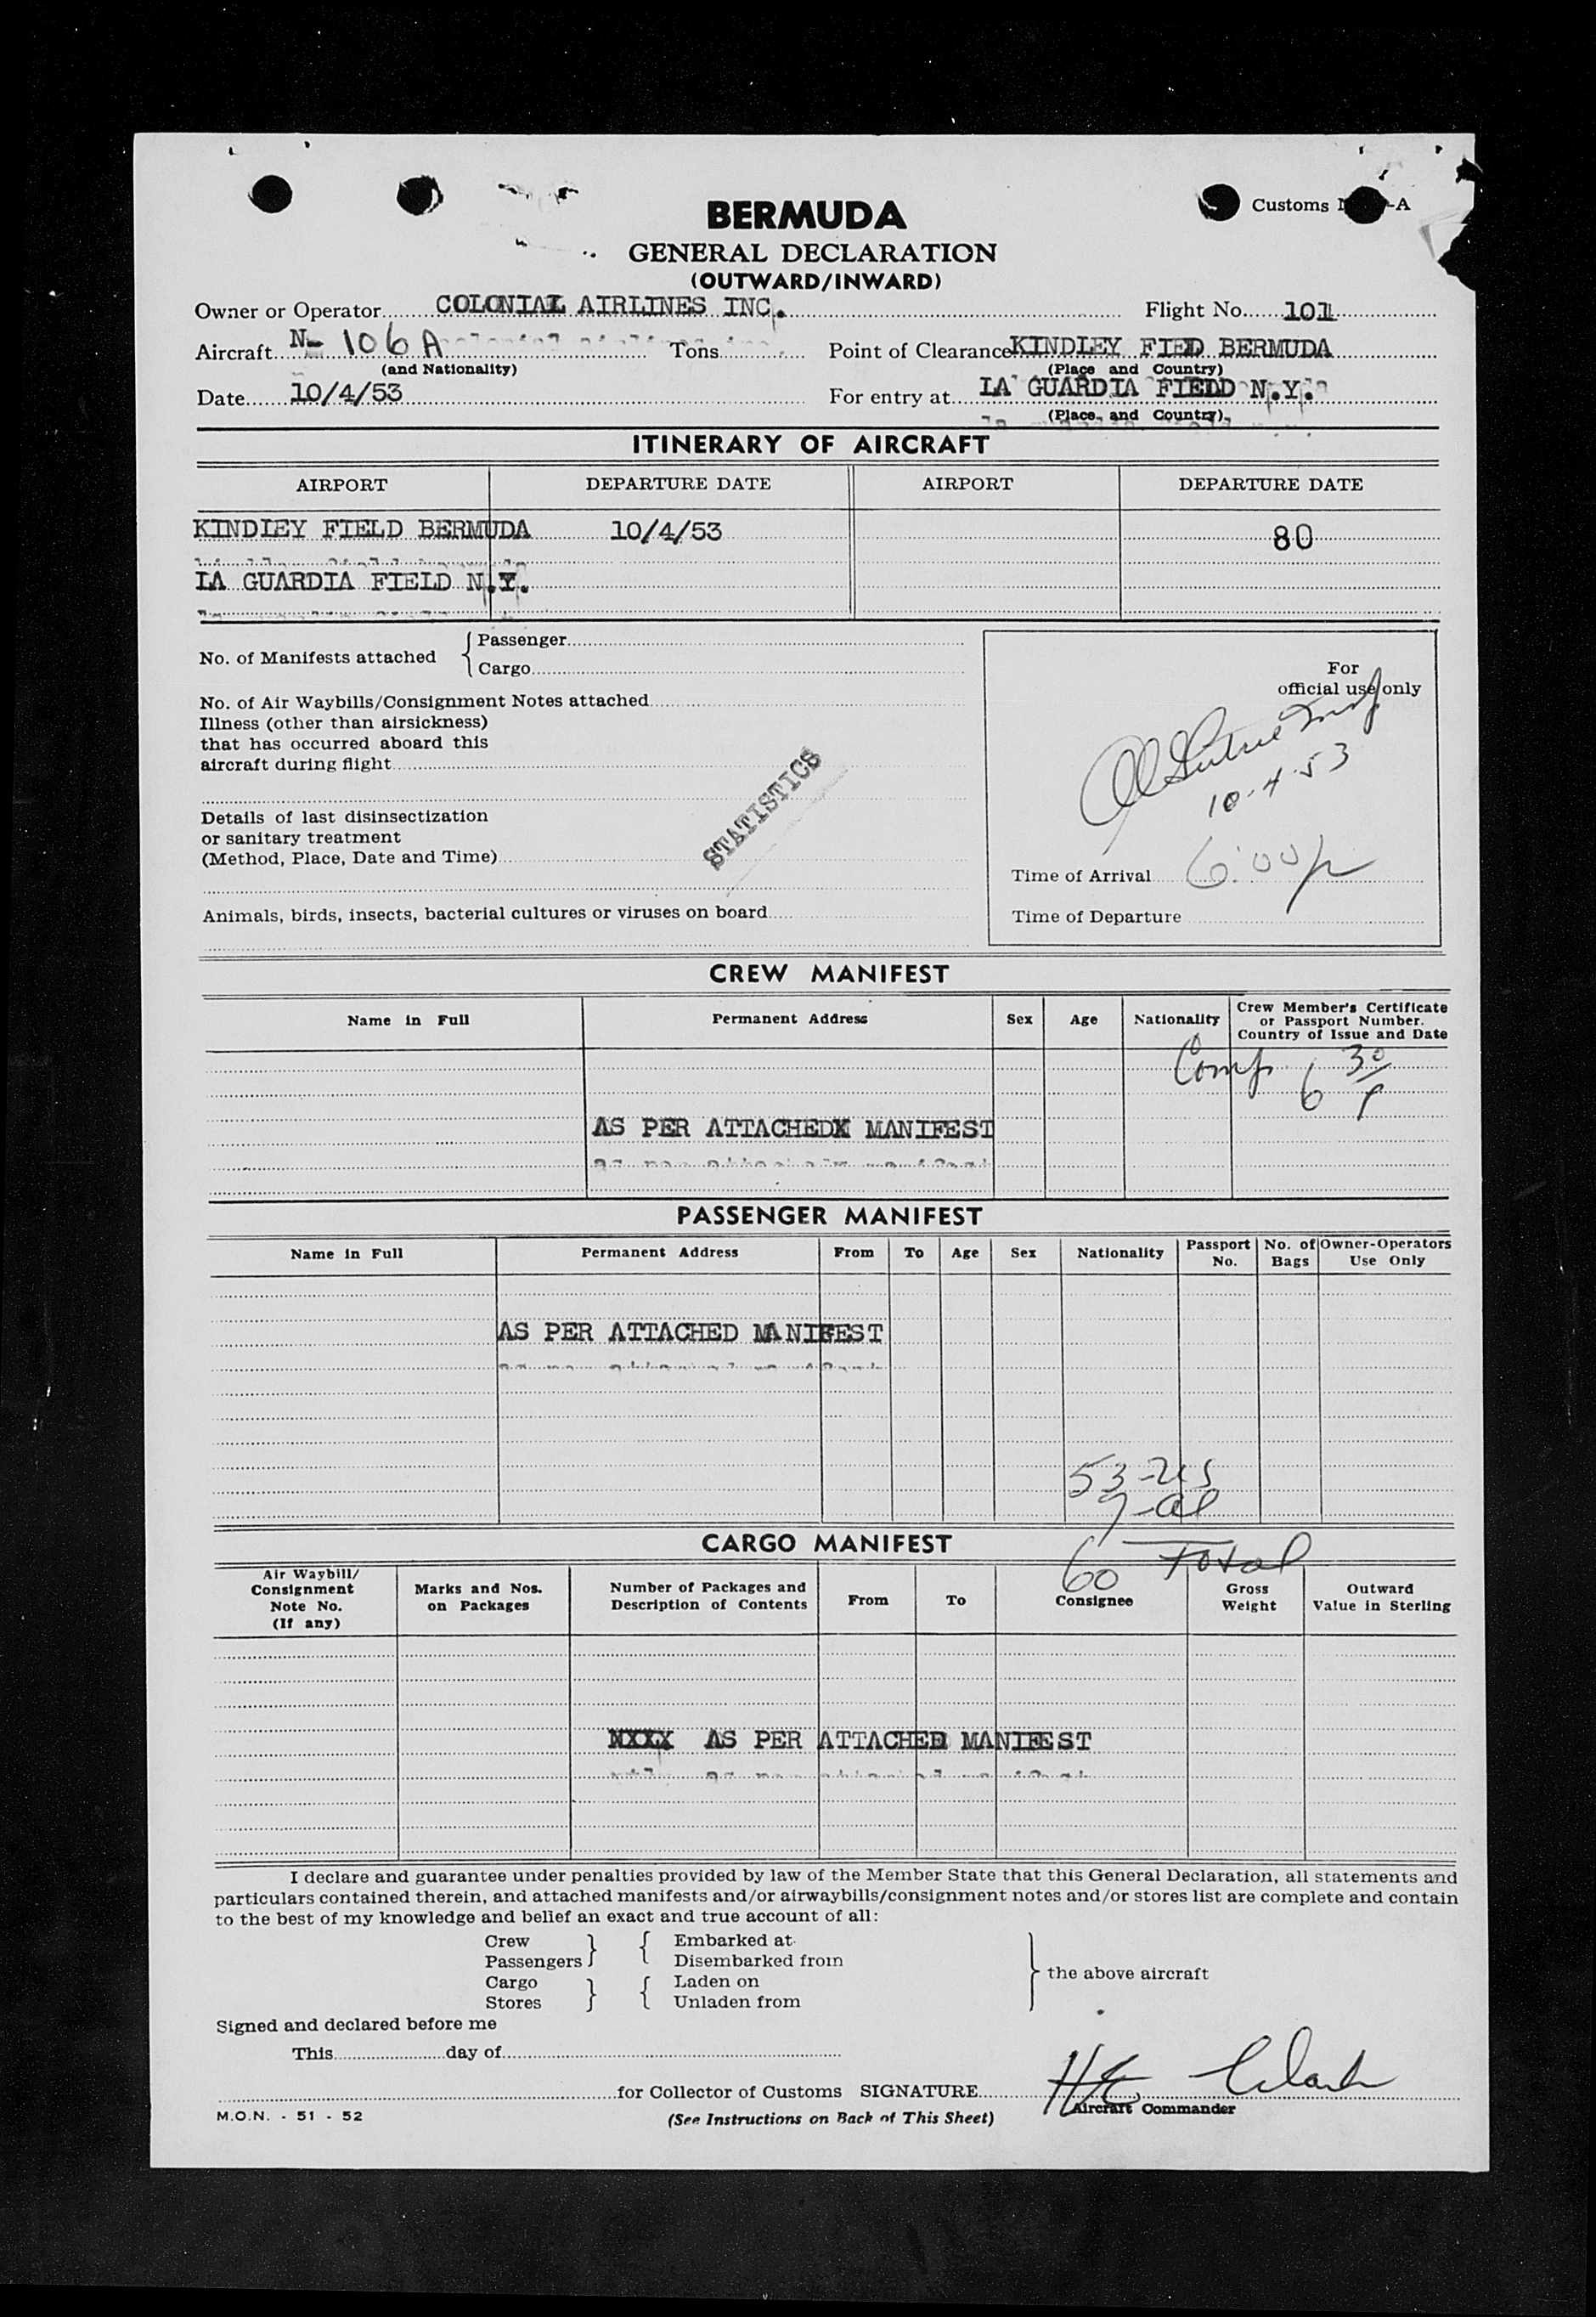 Customs -A
BERMUDA
GENERAL DECLARATION
(OUTWARD/INWARD)
Owner or Operator COLONIAL AIRLINES INC. Flight No. 101
Aircraft N- 106A Tons Point of Clearance KINDLEY FIED BERMUDA
(and Nationality) (Place and Country)
Date 10/4/53 For entry at LA GUARDIA FIELD N.Y.
(Place and Country)
ITINERARY OF AIRCRAFT
AIRPORT DEPARTURE DATE AIRPORT DEPARTURE DATE
KINDLEY FIELD BERMUDA 10/4/53 80
LA GUARDIA FIELD N.Y.
No. of Manifests attached { Passenger
Cargo
For
official use only
No. of Air Waybills/Consignment Notes attached
Illness (other than airsickness)
that has occurred aboard this
aircraft during flight
10-4-53
STATISTICS
Details of last disinsectization
or sanitary treatment
(Method, Place, Date and Time)
Time of Arrival 6:00p
Animals, birds, insects, bacterial cultures or viruses on board
Time of Departure
CREW MANIFEST
Name in Full Permanent Address Sex Age Nationality Crew Member's Certificate
or Passport Number.
Country of Issue and Date
Comp 6 30 p
AS PER ATTACHEDX MANIFEST
PASSENGER MANIFEST
Name in Full Permanent Address From To Age Sex Nationality Passport No. No. of Bags Owner-Operators Use Only
AS PER ATTACHED MANIFEST
53-US
7-al
60 Total
CARGO MANIFEST
Air Waybill/
Consignment
Note No.
(If any)
Marks and Nos.
on Packages
Number of Packages and
Description of Contents
From To Consignee
Gross
Weight
Outward
Value in Sterling
NXXX AS PER ATTACHED MANIFEST
I declare and guarantee under penalties provided by law of the Member State that this General Declaration, all statements and
particulars contained therein, and attached manifests and/or airwaybills/consignment notes and/or stores list are complete and contain
to the best of my knowledge and belief an exact and true account of all:
Crew } { Embarked at
Passengers } { Disembarked from
Cargo } { Laden on
Stores } { Unladen from
} the above aircraft
Signed and declared before me
This day of
for Collector of Customs SIGNATURE H E Clark
Aircraft Commander
M.O.N. - 51 - 52
(See Instructions on Back of This Sheet)